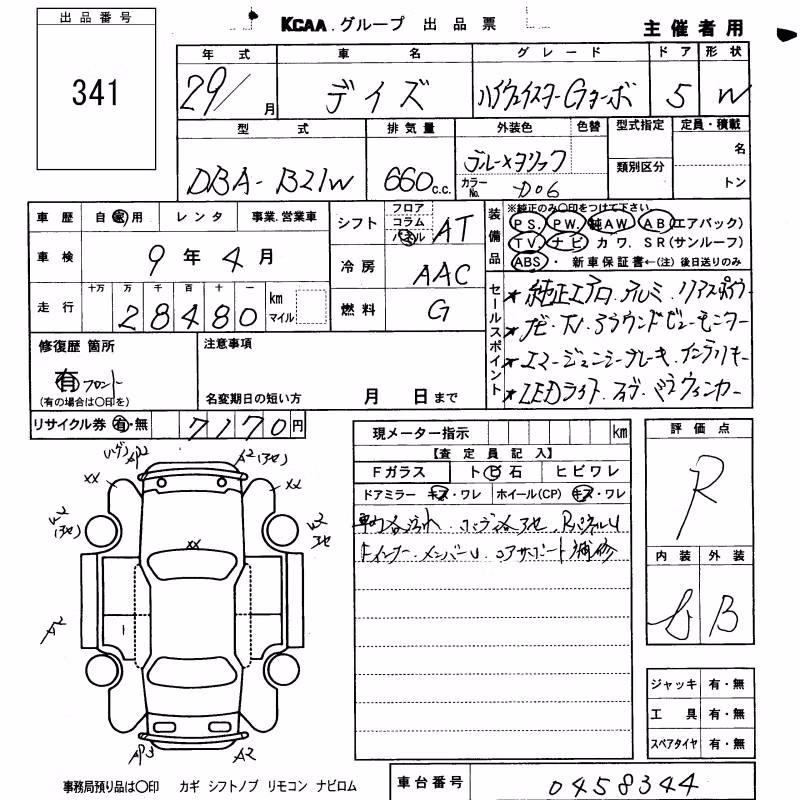 出品番号
341
KCAA.グループ 出品票
主催者用
年式 車名 グレード ドア 形状
29/ 月 デイズ ハイウェイスターGターボ 5 W
型式 排気量 外装色 色替 型式指定 定員・積載
DBA-B21W 660 c.c. カラーNo. D06 類別区分 名
トン
車歴 自家用 レンタ 事業.営業車
車検 9年4月
走行 十万 万 千 百 十 一
28480 km マイル
シフト フロア コラム パネル AT
冷房 AAC
燃料 G
装備品 ※純正のみ○印をつけて下さい
PS. PW. 純AW AB(エアバック)
TV. ナビ カワ. SR(サンルーフ)
ABS ・ 新車保証書←(注)後日送りのみ
セールスポイント
★純正エアロ アルミ リアスポイラ
★ナビ TV アラウンドビューモニター
★エマージェンシーブレーキ インテリキー
★LEDライト フォグ ドラミラウィンカー
修復歴 箇所
有 フロント
(有の場合は○印を)
注意事項
名変期日の短い方 月 日まで
リサイクル券 有・無 7170円
現メーター指示 km
【査定員記入】
Fガラス ト ビ 石 ヒビワレ
ドアミラー キズ・ワレ ホイール(CP) キズ・ワレ
Fインナー、メンバーU、コアサポート補修
評価点
R
内装 外装
B
ジャッキ 有・無
工具 有・無
スペアタイヤ 有・無
AP2 A2
XX XX
XX
A2
1
AP3 A2
事務局預り品は○印 カギ シフトノブ リモコン ナビロム
車台番号 0458344